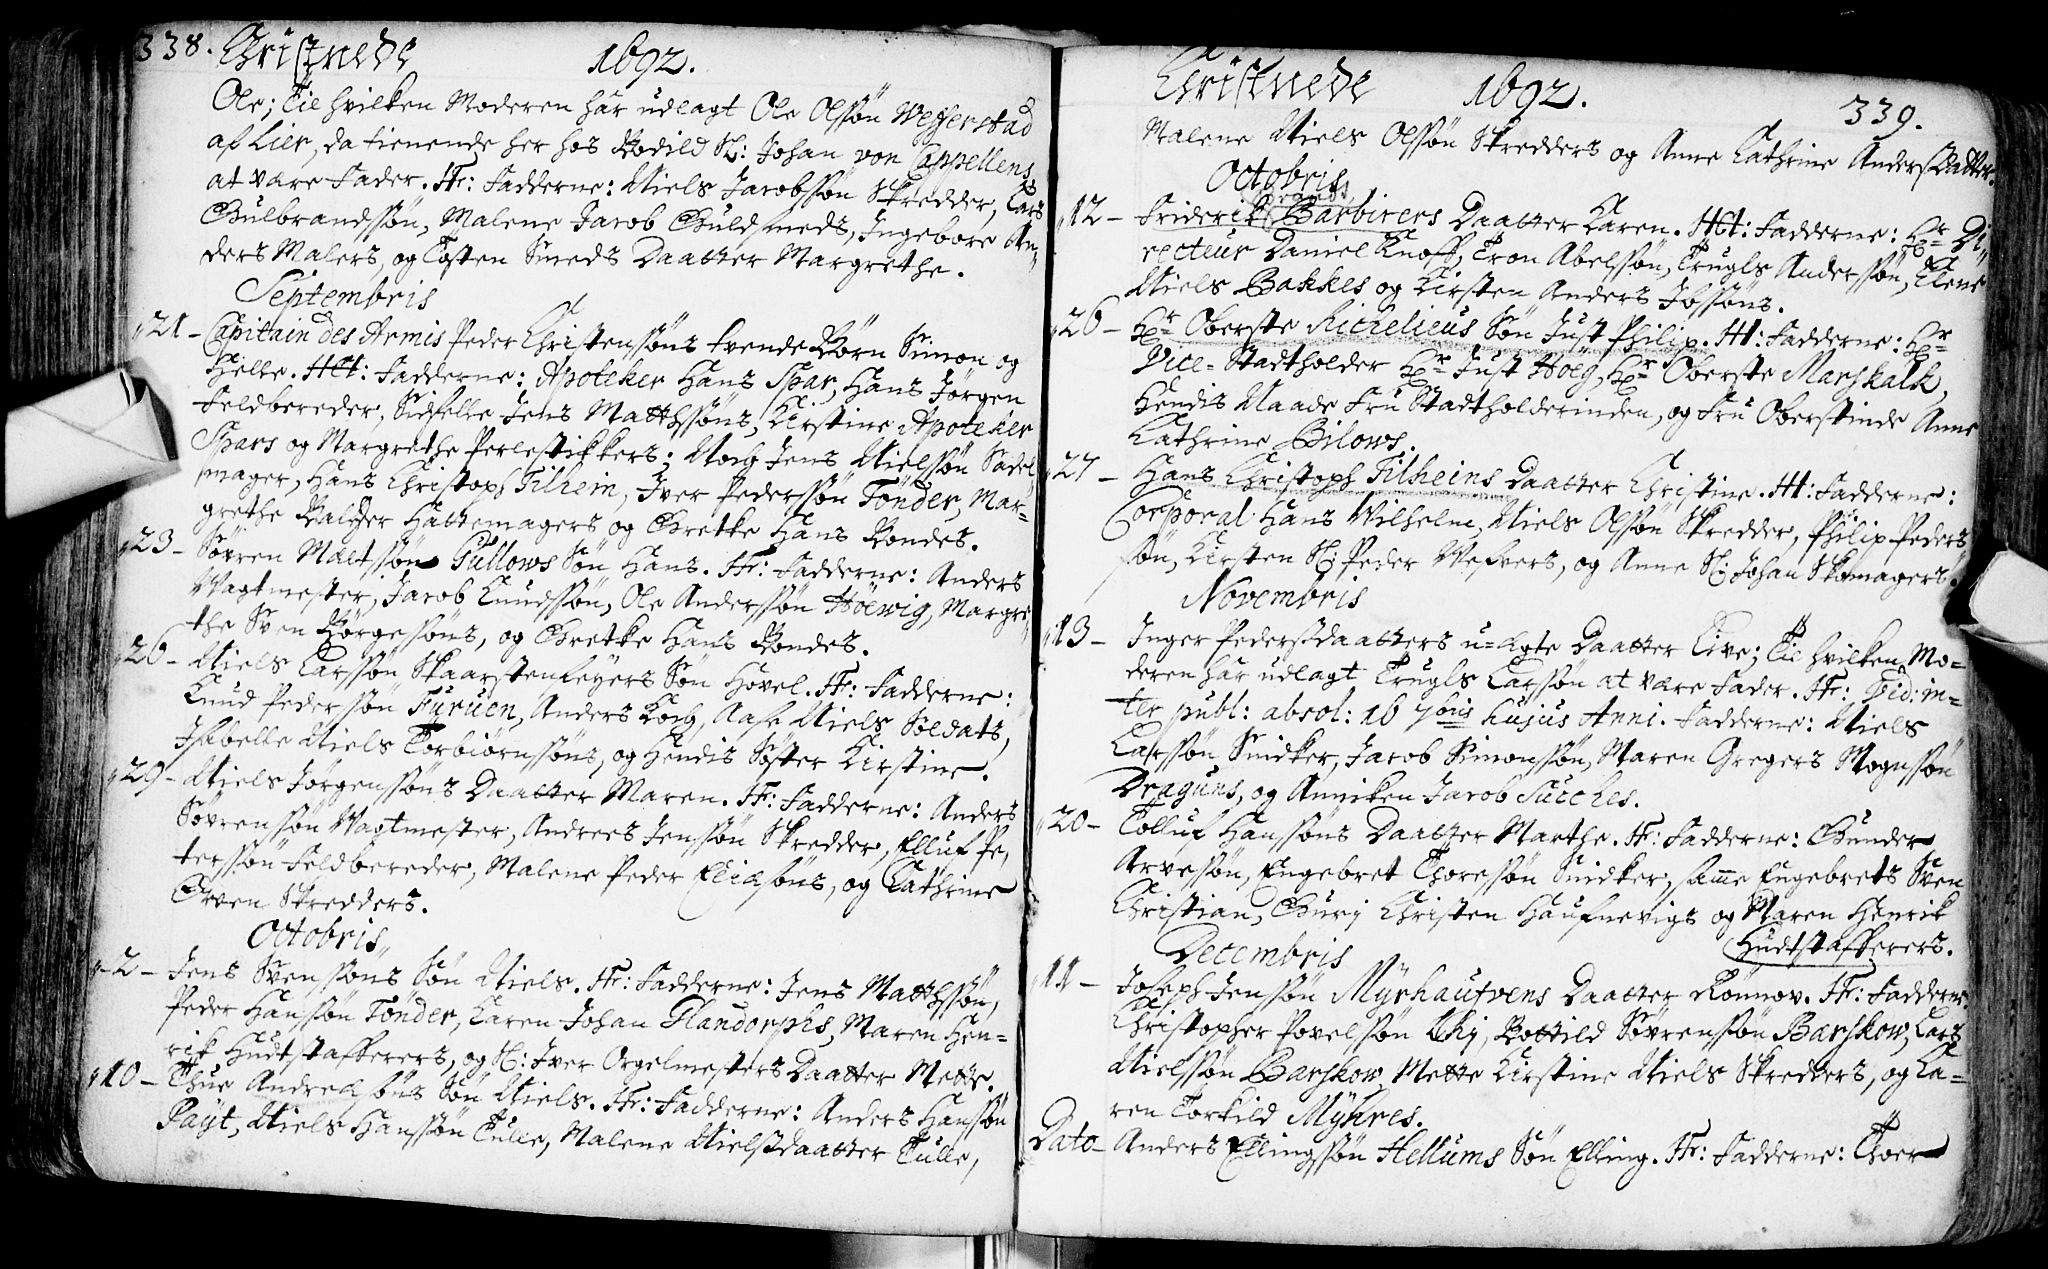 338. Christnede 1692.
Ole; Til hvilken Moderen har udlagt Ole Olssøn Weyerstad
af Lier, da tienende her hos Bodild Sl: Johan von Cappellens
at være Fader. Fr: Fadderne: Niels Jacobssøn Skredder, Lars
Gulbrandssøn, Malene Jacob Guldsmeds, Ingebore An„
ders Malers, og Tosten Smeds Daatter Margrethe.
Septembris
„21– Capitain des Armis Peder Christenssøns tvende Børn Simon og
Helle. Htt: Fadderne: Apoteker Hans Spar, Hans Jørgen
Feldbereder, Sidselle Jens Matthssøns, Kirstine Apoteker
Spars og Margrethe Perlestikkers; Noch Jens Nielssøn Sadel
mager, Hans Christoph Tilhein, Iver Pederssøn Tönder, Mar=
grethe Baltzer Hattemagers og Grethe Hans Bondes.
„23– Søvren Maltssøn Gullows Søn Hans. Fr: Fadderne: Anders
Vagtmester, Jacob Knudssøn, Ole Anderssøn Höewig, Margre„
the Sven Børgessøns, og Grethe Hans Bondes.
„26– Niels Larssøn Skaarstenfeyers Søn Hovel. Fr: Fadderne:
Knud Pederssøn Furuen, Anders Koch, Aase Niels Soldats,
Isabelle Niels Torbiørnssøns, og hendis Søster Kirstine.
„29– Niels Jørgenssøns Daatter Maren. Fr: Fadderne: Anders
Søvrenssøn Vagtmester, Andrees Jenssøn Skredder, Elluf Pe„
terssøn Feldbereder, Malene Peder Eliæsøns, og Cathrine
Orven Skredders.
Octobris
„–2– Jens Svenssøns Søn Niels. Fr: Fadderne: Jens Matthssøn,
Peder Hanssøn Tönder, Karen Johan Glandorphs, Maren Hen=
rik Hudtstafferers, og Sl: Iver Orgelmesters Daatter Mette.
„10– Thue Andreæsøns Søn Niels. Fr: Fadderne: Anders Hanssøn
Payt, Niels Hanssøn Tulle, Malene Nielsdaatter Tulle,
Christnede 1692. 339.
Malene Niels Olssøn Skredders og Anne Cathrine Andersdatter.
Octobris
„12– Friderik Brandt Barbirers Daatter Karen. Htt: Fadderne: Hr Di„
recteur Daniel Knoff, Tron Abelssøn, Trugls Anderssøn, Elene
Niels Bakkes og Kirsten Anders Jossøns.
„26– Hr Oberste Richelieus Søn Just Philip. Ht: Fadderne: Hr
Vice=Stadtholder Hr Just Höeg, Hr Oberste Marskalk,
Hendis Naade Fru Stadtholderinden, og Fru Oberstinde Anne
Cathrine Bilows.
„27– Hans Christoph Tilheins Daatter Christine. Ht: Fadderne:
Corporal Hans Wilhelm, Niels Olssøn Skredder, Philip Peders
søn, Kirsten Sl: Peder Vefvers, og Anne Sl: Johan Skomagers.
Novembris
„13– Inger Pedersdaatters u=ægte Daatter Live; Til hvilken Mo=
deren har udlagt Trugls Larssøn at være Fader. Fr: Vid: in=
ter publ: absol: 16 7bris hujus Anni. Fadderne: Niels
Larssøn Snidker, Jacob Simonssøn, Maren Gregers Mognssøn
Draguns, og Anniken Jacob Suiches.
„20– Tolluf Hanssøns Daatter Marthe. Fr: Fadderne: Gunder
Arvessøn, Engebret Thoressøn Snidker, samme Engebrets Sven
Christian, Guri Christen Haufnevigs og Maren Henrik
Hudtstafferers.
Decembris
„11– Joseph Jenssøn Myrhautvens Daatter Rønnov. Fr: Fadderne:
Christopher Povelssøn Uhj, Bottild Søvrenssøn Barskow, Lars
Nielssøn Barskow, Mette Kirstine Niels Skredders, og Ka=
ren Torkild Myhres.
Dato– Anders Ellingssøn Hellums Søn Elling. Fr: Fadderne: Thoer